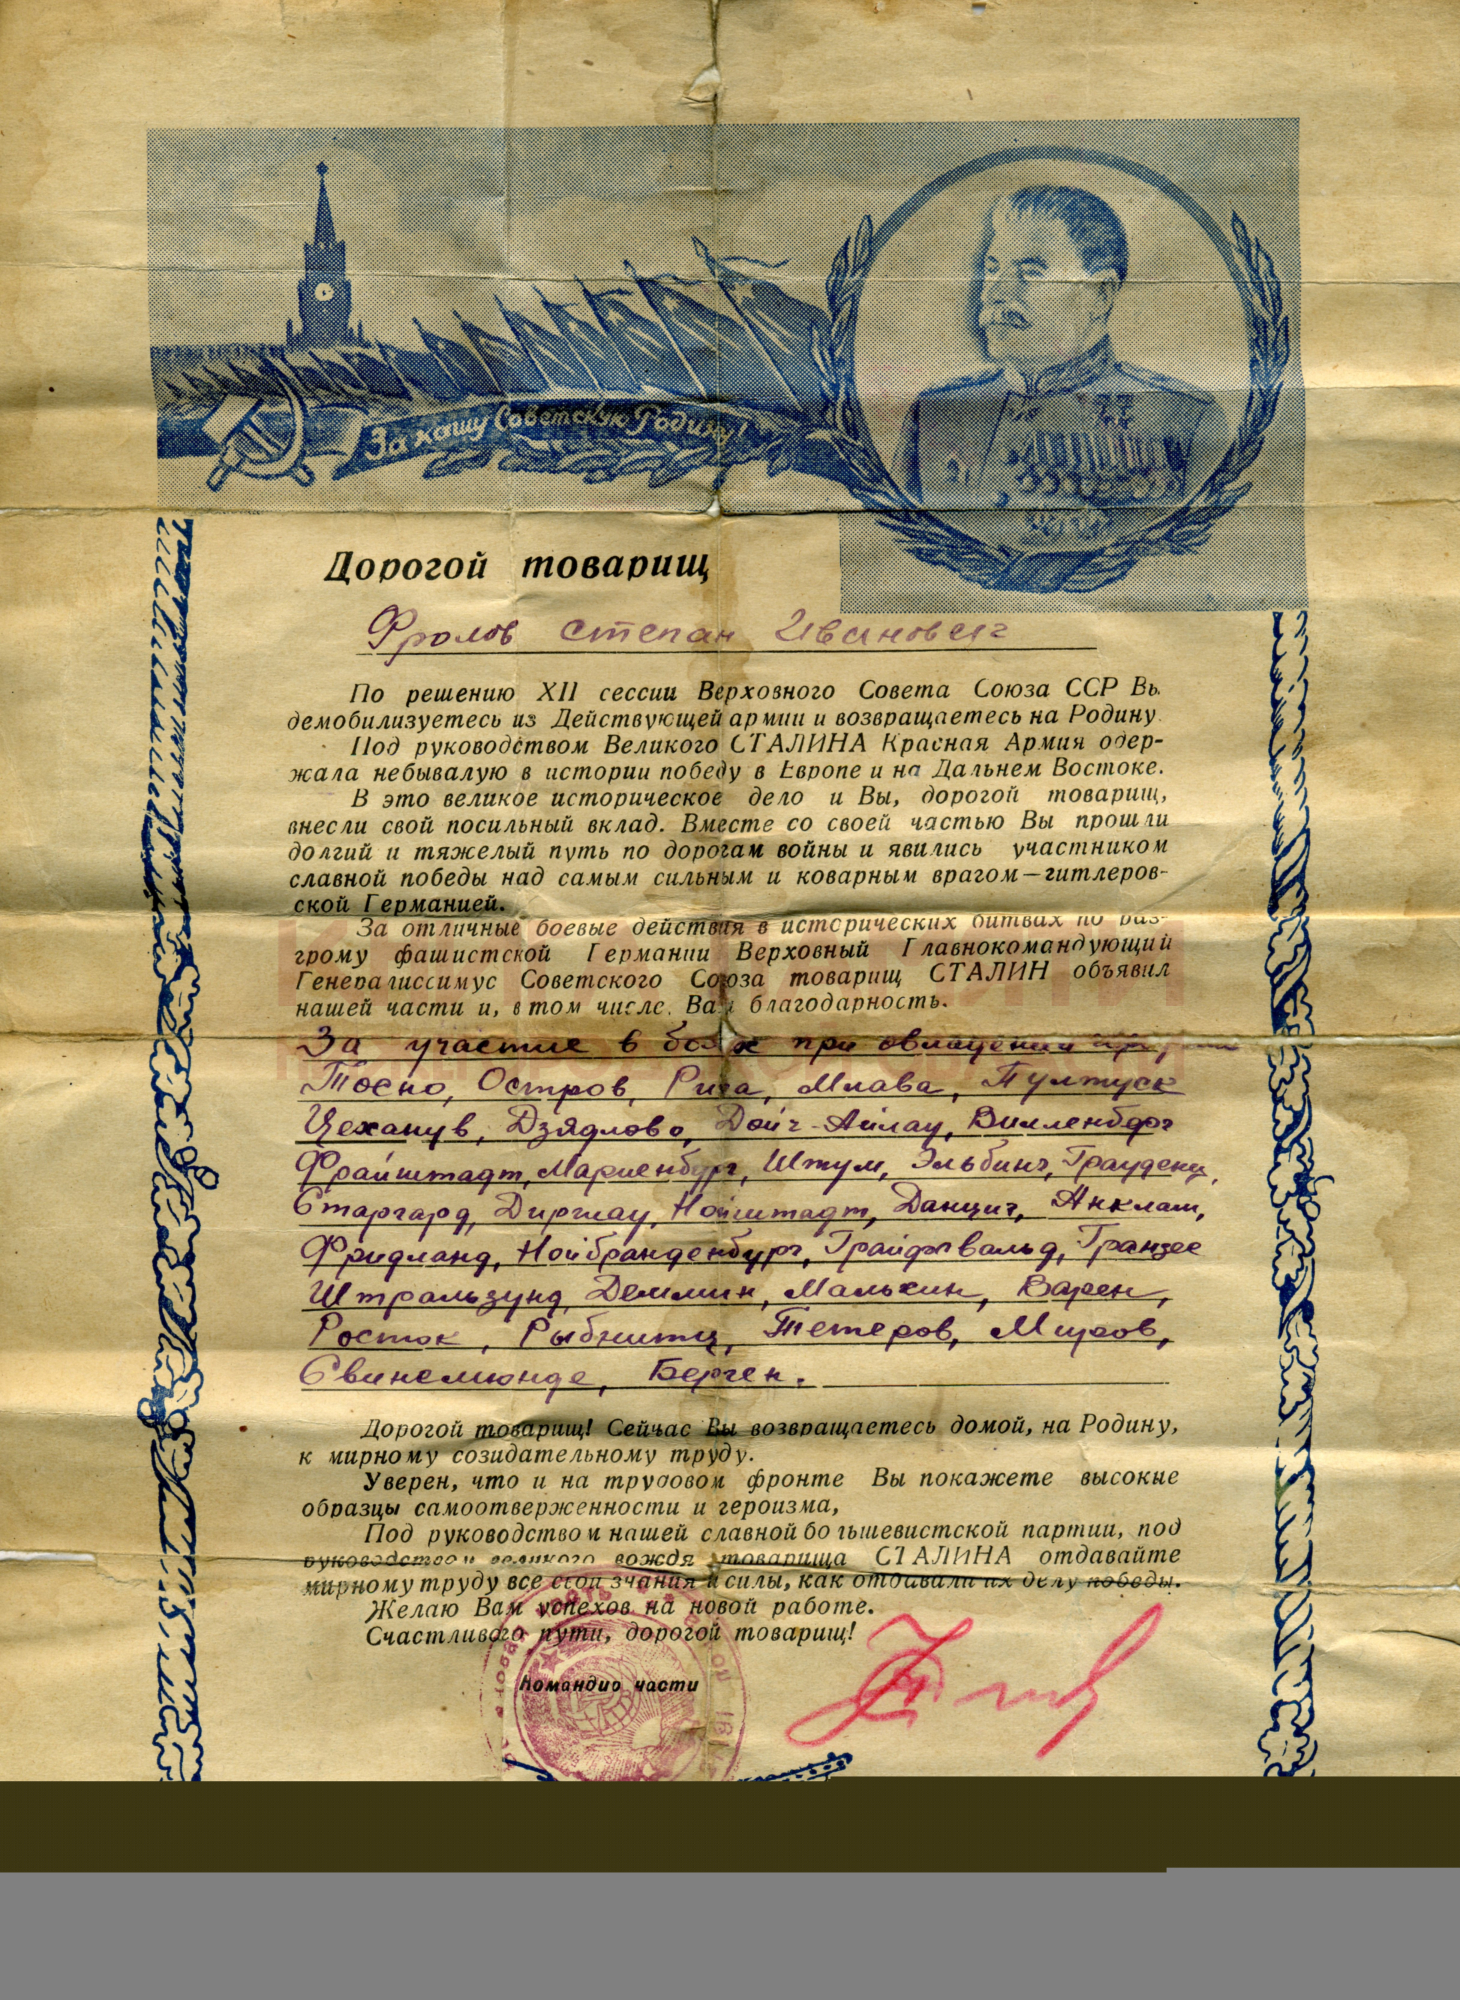 За нашу Советскую Родину!
Дорогой товарищ
Фролов Степан Иванович
По решению XII сессии Верховного Совета Союза ССР Вы
демобилизуетесь из Действующей армии и возвращаетесь на Родину.
Под руководством Великого СТАЛИНА Красная Армия одер-
жала небывалую в истории победу в Европе и на Дальнем Востоке.
В это великое историческое дело и Вы, дорогой товарищ,
внесли свой посильный вклад. Вместе со своей частью Вы прошли
долгий и тяжелый путь по дорогам войны и явились участником
славной победы над самым сильным и коварным врагом — гитлеров-
ской Германией.
За отличные боевые действия в исторических битвах по раз-
грому фашистской Германии Верховный Главнокомандующий
Генералиссимус Советского Союза товарищ СТАЛИН объявил
нашей части и, в том числе, Вам благодарность.
За участие в боях при овладении
Тосно, Остров, Рига, Млава, Пултуск
Цеханув, Дзядлово, Дойч-Айлау, Вилленберг
Фрайштадт, Мариенбург, Штум, Эльбинг, Грауденц,
Старгард, Диршау, Нойштадт, Данциг, Анклам,
Фридланд, Нойбранденбург, Грайфсвальд, Гранзее
Штральзунд, Деммин, Мальхин, Варен,
Росток, Рыбнитц, Тетеров, Миров,
Свинемюнде, Берген.
Дорогой товарищ! Сейчас Вы возвращаетесь домой, на Родину,
к мирному созидательному труду.
Уверен, что и на трудовом фронте Вы покажете высокие
образцы самоотверженности и героизма,
Под руководством нашей славной большевистской партии, под
руководством великого вождя товарища СТАЛИНА отдавайте
мирному труду все свои знания и силы, как отдавали их делу победы.
Желаю Вам успехов на новой работе.
Счастливого пути, дорогой товарищ!
Командир части